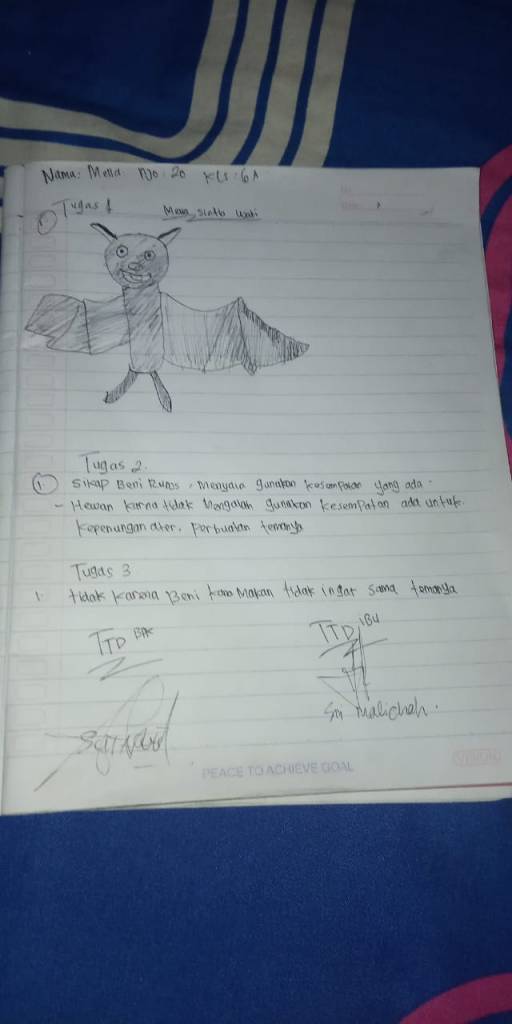 Nama: Mella. No: 20 Kls: 6A
Tugas 1
1.
Tugas 2.
1. Sikap Beni Rubs, Menyala gunakan kesempatan yang ada.
- Hewan karna tidak Mengalah gunakan kesempatan ada untuk
Perbuatan temanya
Tugas 3
1. tidak Karena Beni Makan tidak ingat sama temanya
TTD BPK
TTD IBU
Sri Malichah.
PEACE TO ACHIEVE GOAL
VISION